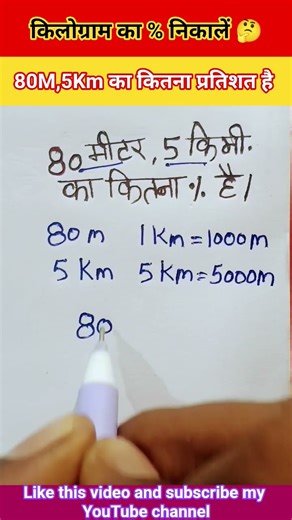 किलोग्राम का % निकालें 🤔
80M,5Km का कितना प्रतिशत है
80 मीटर, 5 किमी.
का कितना % है।
80 m 1 Km = 1000m
5 Km 5 Km = 5000m
80
Like this video and subscribe my
YouTube channel